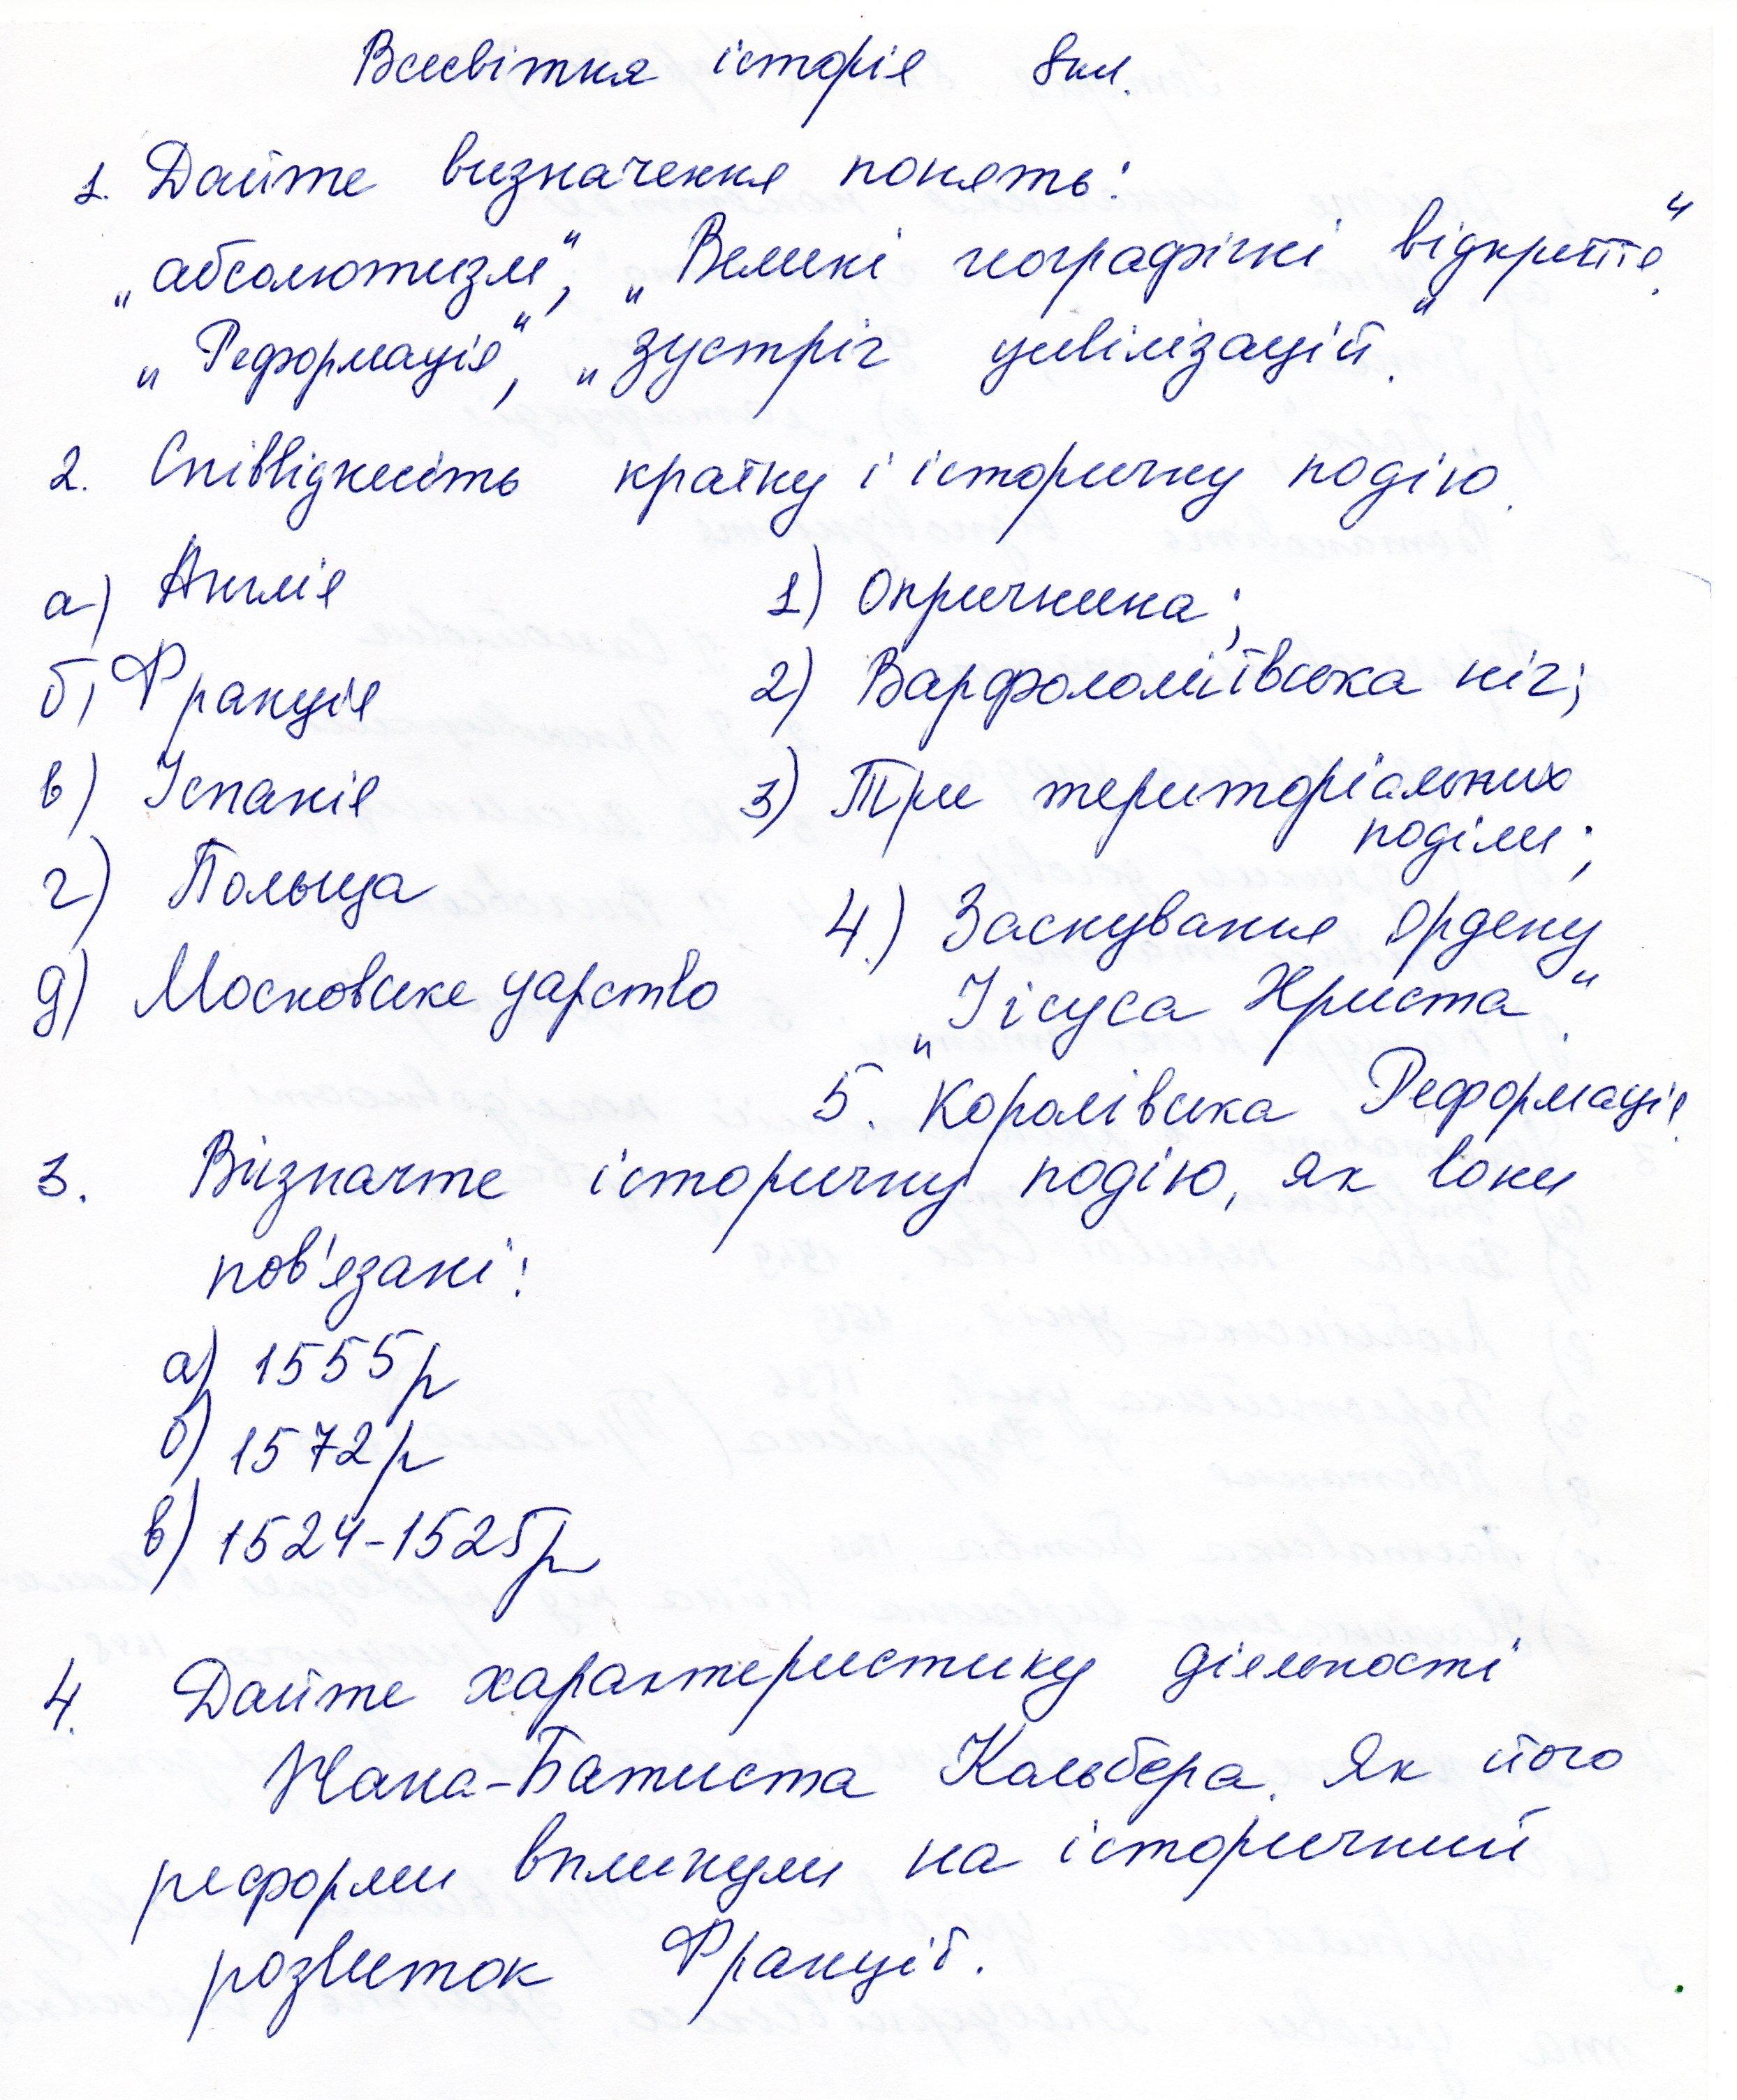 Всесвітня історія 8кл.
1. Дайте визначення понять:
„абсолютизм“, „Великі географічні відкриття“.
„Реформація“, „зустріч цивілізацій“.
2. Співвіднесіть країну і історичну подію.
а) Англія
1) Опричнина;
б) Франція
2) Варфоломіївська ніч;
в) Іспанія
3) Три територіальних
поділи;
г) Польща
4.) Заснування Ордену
д) Московське царство
„Іісуса Христа“.
5. Королівська Реформація.
3. Визначте історичну подію, як вони
пов'язані:
а) 1555р
б) 1572р
в) 1524-1525р
4. Дайте характеристику діяльності
Жана-Батиста Кольбера. Як його
реформи вплинули на історичний
розвиток Франції.